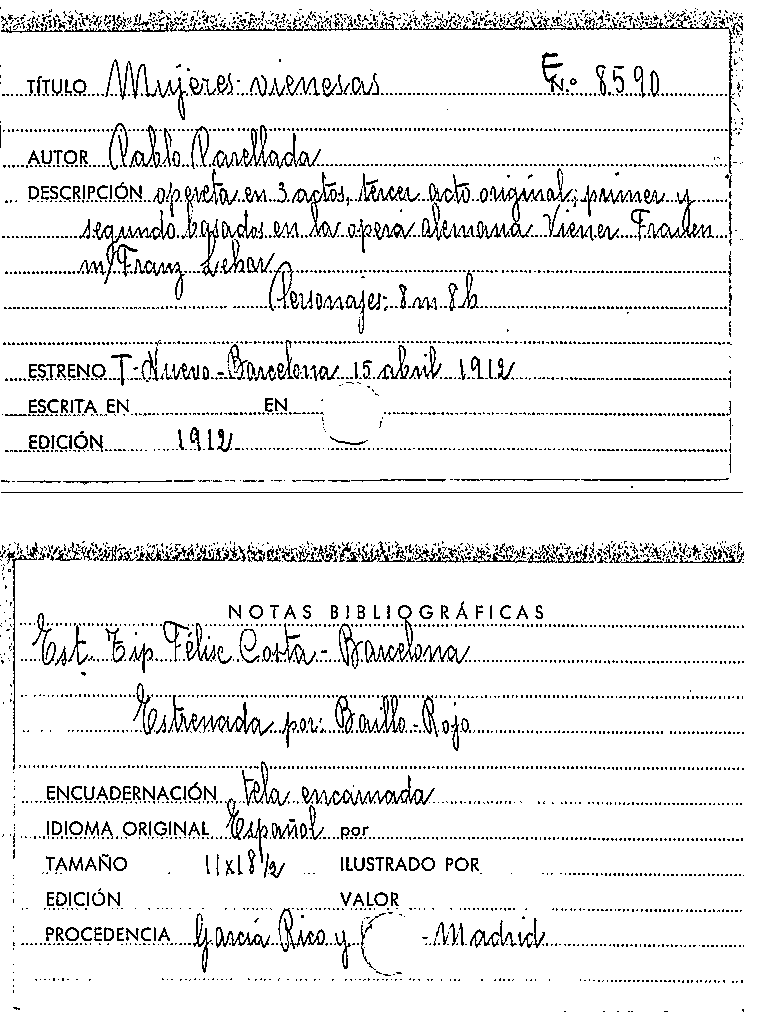 TÍTULO Mujeres vienesas E N.º 8590
AUTOR Pablo Parellada
DESCRIPCIÓN opereta en 3 actos, tercer acto original; primer y
segundo basados en la opera alemana Viener Frauen
m/ Franz Lehar
Personajes: 8 m 8 h
ESTRENO T- Nuevo - Barcelona 15 abril 1912
ESCRITA EN EN
EDICIÓN 1912
NOTAS BIBLIOGRÁFICAS
Est. Tip Félix Costa - Barcelona
Estrenada por: Baillo - Rojo
ENCUADERNACIÓN tela encarnada
IDIOMA ORIGINAL Español por
TAMAÑO 11x18 1/2 ILUSTRADO POR
EDICIÓN VALOR
PROCEDENCIA García Rico y - Madrid